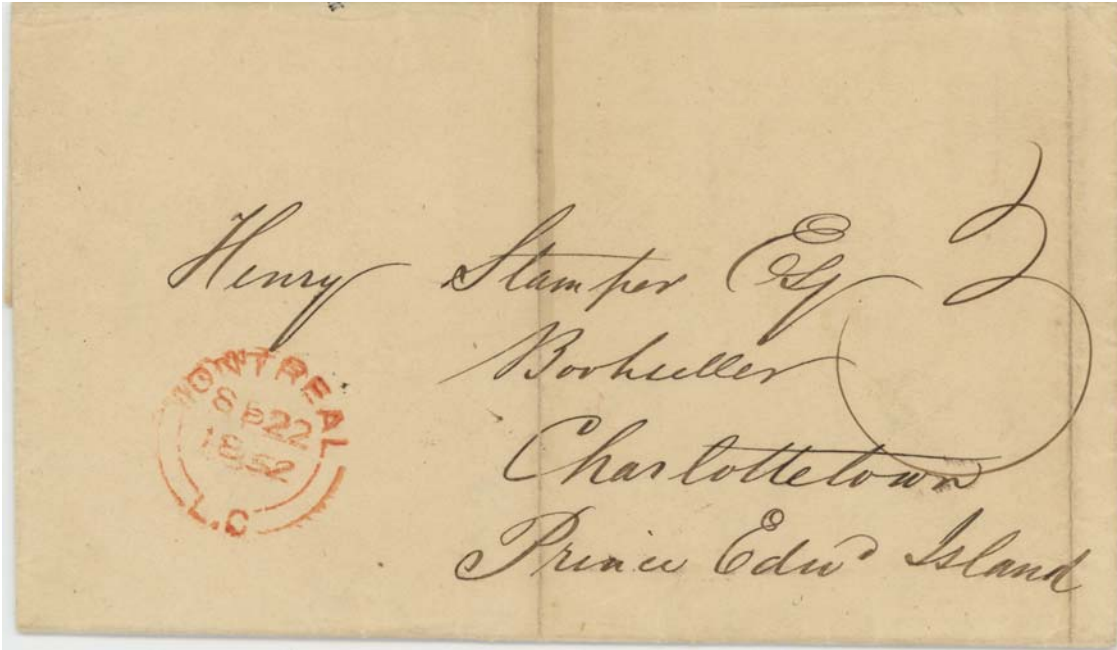 Henry Stamper Esq 3
Bookseller
Charlottetown
Prince Edwd Island
MONTREAL
SP 22
1852
L.C